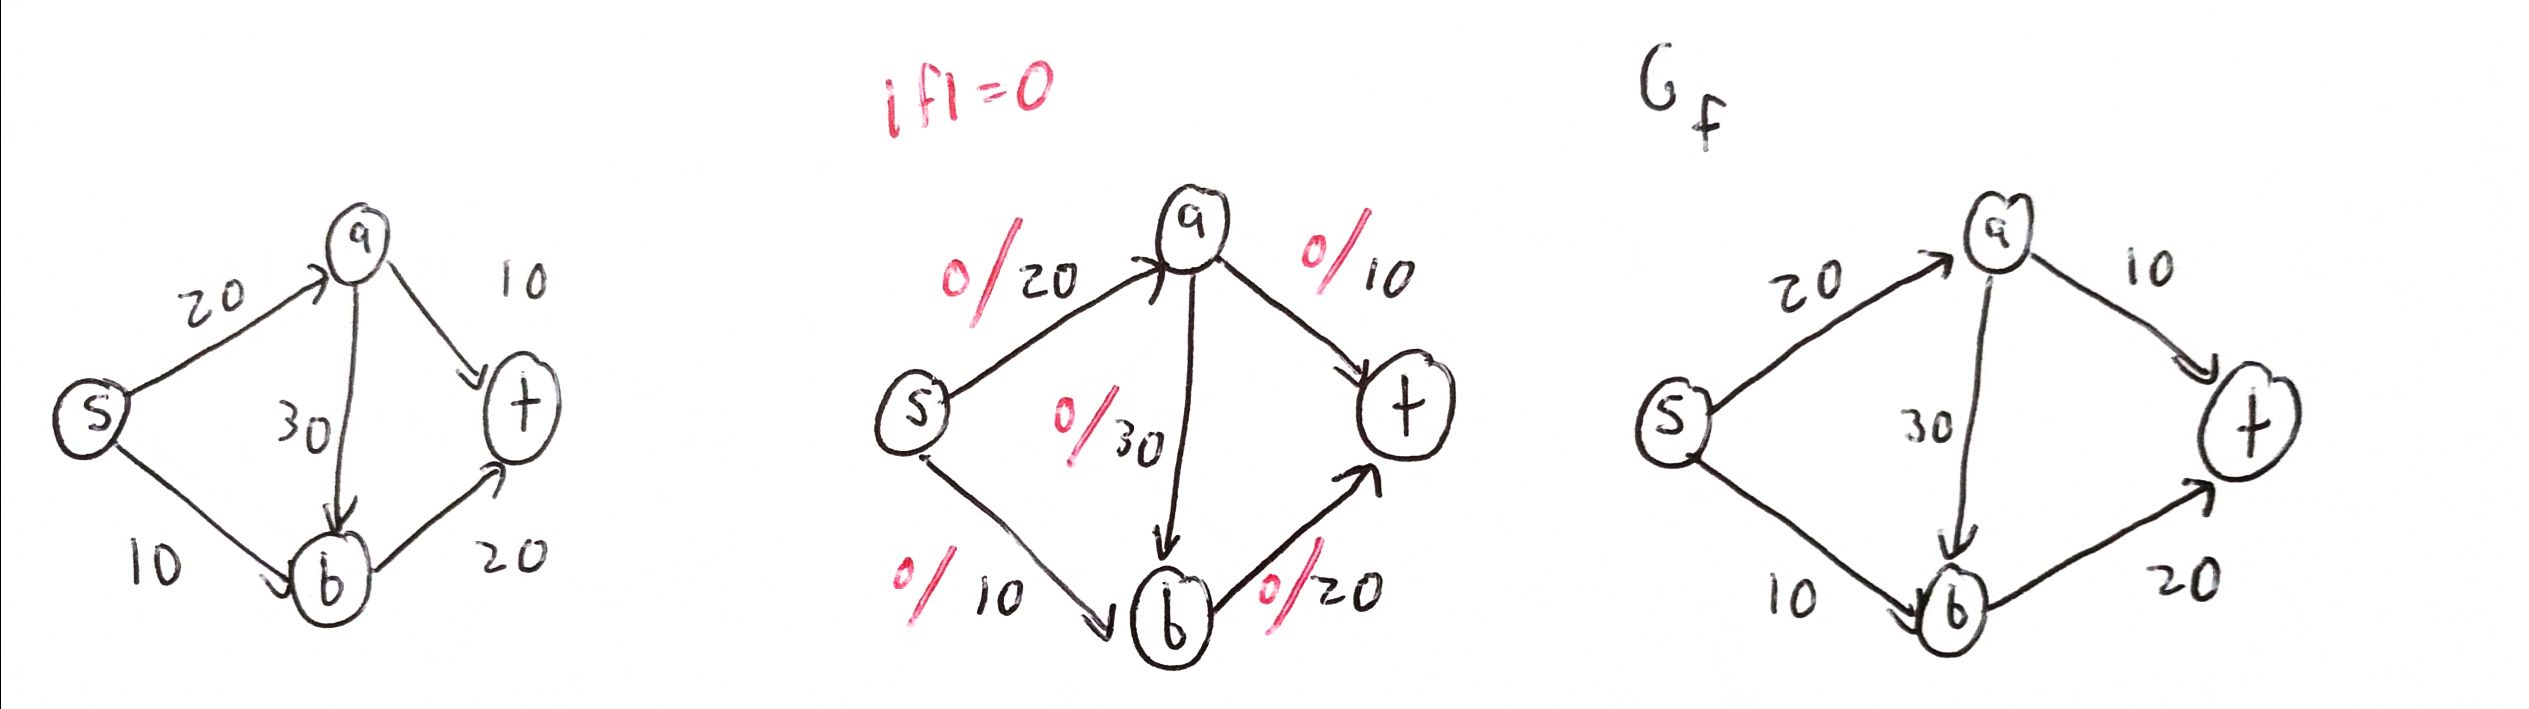 |f|=0
G_f
a
20
10
s
30
t
10
b
20
a
0/20
0/10
s
0/30
t
0/10
b
0/20
a
20
10
s
30
t
10
b
20